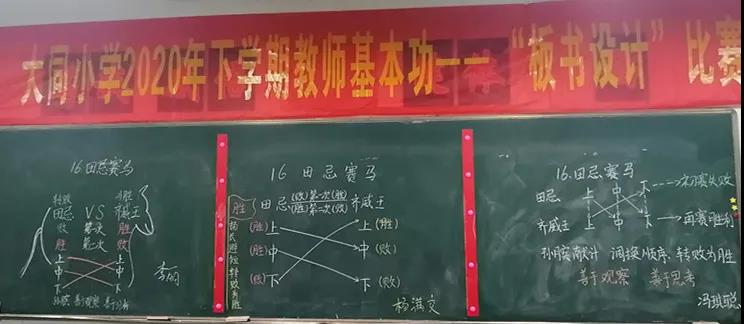 大同小学2020年下学期教师基本功——“板书设计”比赛
16 田忌赛马
转败 小胜
田忌 VS 齐威王
败 第一次 胜
胜 第二次 败
上 上
中 中
下 下
孙膑 善于观察 善于分析
16 田忌赛马
胜
扬长避短 转败为胜
田忌 (败)第一次(胜) 齐威王
(胜)第二次(败)
(胜) 上 上 (胜)
(胜) 中 中 (败)
(败) 下 下 (败)
杨满文
16.田忌赛马
田忌 上 中 下 初赛失败
齐威王 上 中 下 再赛胜利
孙膑献计 调换顺序 转败为胜
善于观察 善于思考
冯琪聪